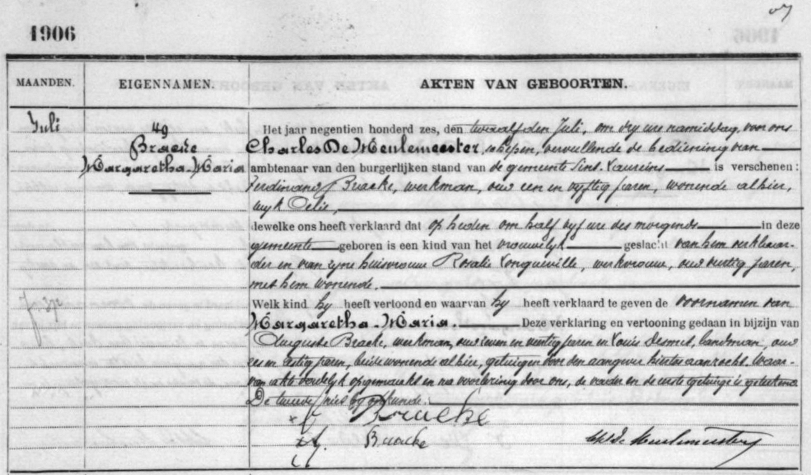 1906
MAANDEN. EIGENNAMEN. AKTEN VAN GEBOORTEN.
Juli
49
Braeke
Margaretha-Maria
Het jaar negentien honderd zes, den twaalfden Juli, om dry ure namiddag, voor ons
Charles De Meulemeester, schepen, vervullende de bediening van
ambtenaar van den burgerlijken stand van de gemeente Sint-Laureins is verschenen:
Ferdinand Braeke, werkman, oud een en vyftig jaren, wonende alhier,
wyk Celie,
dewelke ons heeft verklaard dat op heden om half vyf ure des morgends in deze
gemeente geboren is een kind van het vrouwelyk geslacht van hem verklaar-
der en van zyne huisvrouw Rosalie Longueville, werkvrouw, oud veertig jaren,
met hem wonende.
Welk kind hy heeft vertoond en waarvan hy heeft verklaard te geven de voornamen van
Margaretha-Maria. Deze verklaring en vertooning gedaan in bijzijn van
Auguste Braeke, werkman, oud zeven en jaren en Louis Desmet, landman, oud
zes en jaren, beide wonende alhier, getuigen door den aangever hiertoe aanzocht. Waar-
van akte dadelyk opgemaakt en na voorlezing door ons, de vader en de eerste getuige is geteekend
De tweede niet by oorkunde.
Braeke
Braeke
De Meulemeester